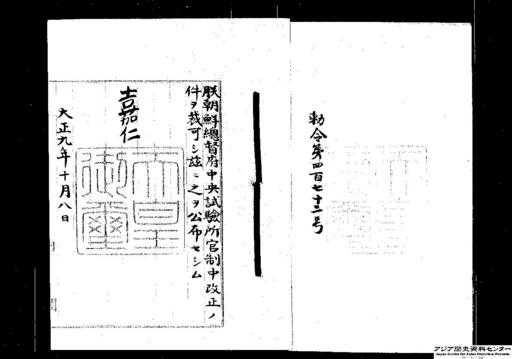 勅令第四百七十二号
朕朝鮮總督府中央試驗所官制中改正ノ
件ヲ裁可シ茲ニ之ヲ公布セシム
嘉仁
天皇御璽
大正九年十月八日
アジア歴史資料センター
Japan Center for Asian Historical Records